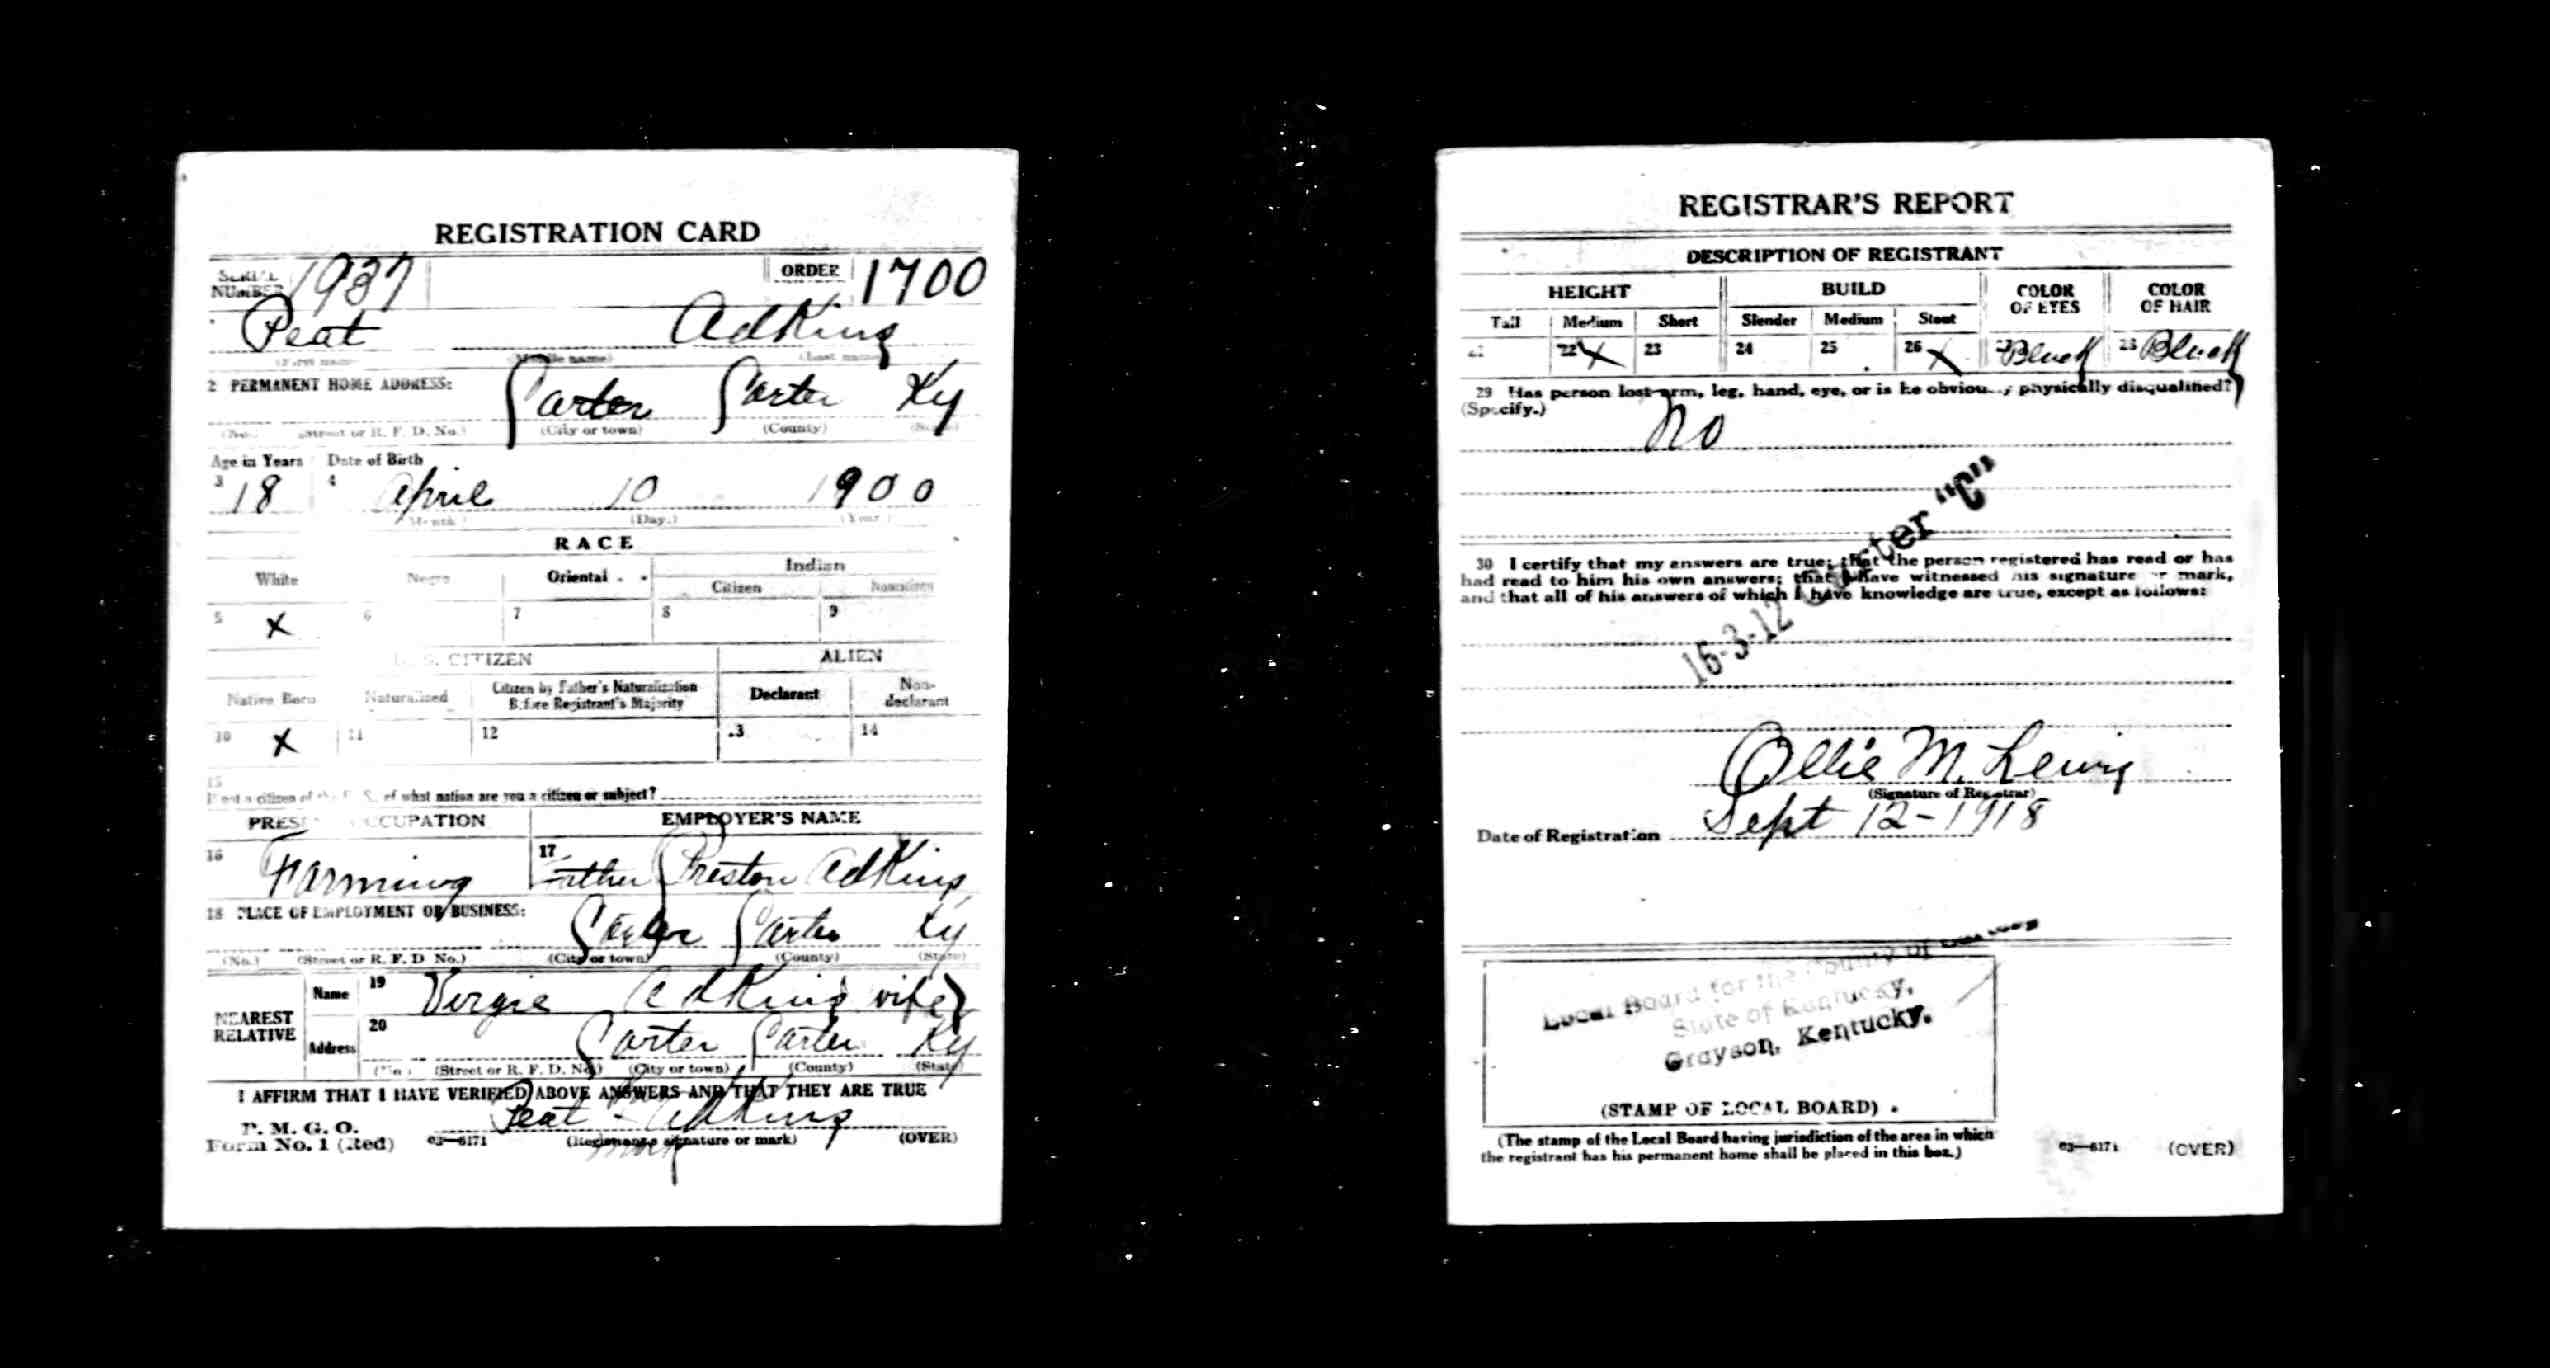 REGISTRATION CARD
SERIAL NUMBER 1937 ORDER 1700
Peat Adkins
(First name) (Middle name) (Last name)
2 PERMANENT HOME ADDRESS:
Carter Carter Ky
(No.) (Street or R. F. D. No.) (City or town) (County) (State)
Age in Years Date of Birth
3 18 4 April 10 1900
(Month.) (Day.) (Year.)
RACE
White Negro Oriental Indian
Citizen Noncitizen
5 X 6 7 8 9
U. S. CITIZEN ALIEN
Native Born Naturalized Citizen by Father's Naturalization Before Registrant's Majority Declarant Non-declarant
10 X 11 12 13 14
15
If not a citizen of the U. S., of what nation are you a citizen or subject?
PRESENT OCCUPATION EMPLOYER'S NAME
16 Farming 17 Father Preston Adkins
18 PLACE OF EMPLOYMENT OR BUSINESS:
Carter Carter Ky
(No.) (Street or R. F. D. No.) (City or town) (County) (State)
NEAREST RELATIVE
Name 19 Virgie Adkins wife
Address 20 Carter Carter Ky
(No.) (Street or R. F. D. No.) (City or town) (County) (State)
I AFFIRM THAT I HAVE VERIFIED ABOVE ANSWERS AND THAT THEY ARE TRUE
Peat Adkins
P. M. G. O.
Form No. 1 (Red) 03—6171 (Registrant's signature or mark) (OVER)
mark
REGISTRAR'S REPORT
DESCRIPTION OF REGISTRANT
HEIGHT BUILD COLOR OF EYES COLOR OF HAIR
Tall Medium Short Slender Medium Stout
21 22 X 23 24 25 26 X 27 Black 28 Black
29 Has person lost arm, leg, hand, eye, or is he obviously physically disqualified?
(Specify.)
No
16-3-12 Carter "C"
30 I certify that my answers are true; that the person registered has read or has
had read to him his own answers; that I have witnessed his signature or mark,
and that all of his answers of which I have knowledge are true, except as follows:
Ollie M. Lewis
(Signature of Registrar)
Date of Registration Sept 12-1918
Local Board for the County of Carter
State of Kentucky,
Grayson, Kentucky.
(STAMP OF LOCAL BOARD)
(The stamp of the Local Board having jurisdiction of the area in which
the registrant has his permanent home shall be placed in this box.)
03—6171 (OVER)